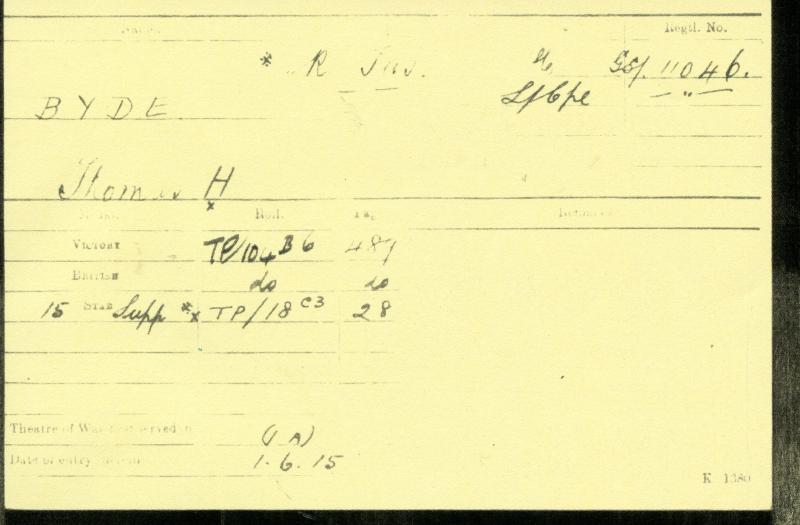 Regtl. No.
* R Fus. GS/. 11046.
L/Cpl
BYDE
Thomas H
x
Roll.
VICTORY TP/104 B6 487
BRITISH do do
15 STAR Supp *x TP/18 C3 28
Theatre of War first served in (1 A)
Date of entry therein 1.6.15
K 1380